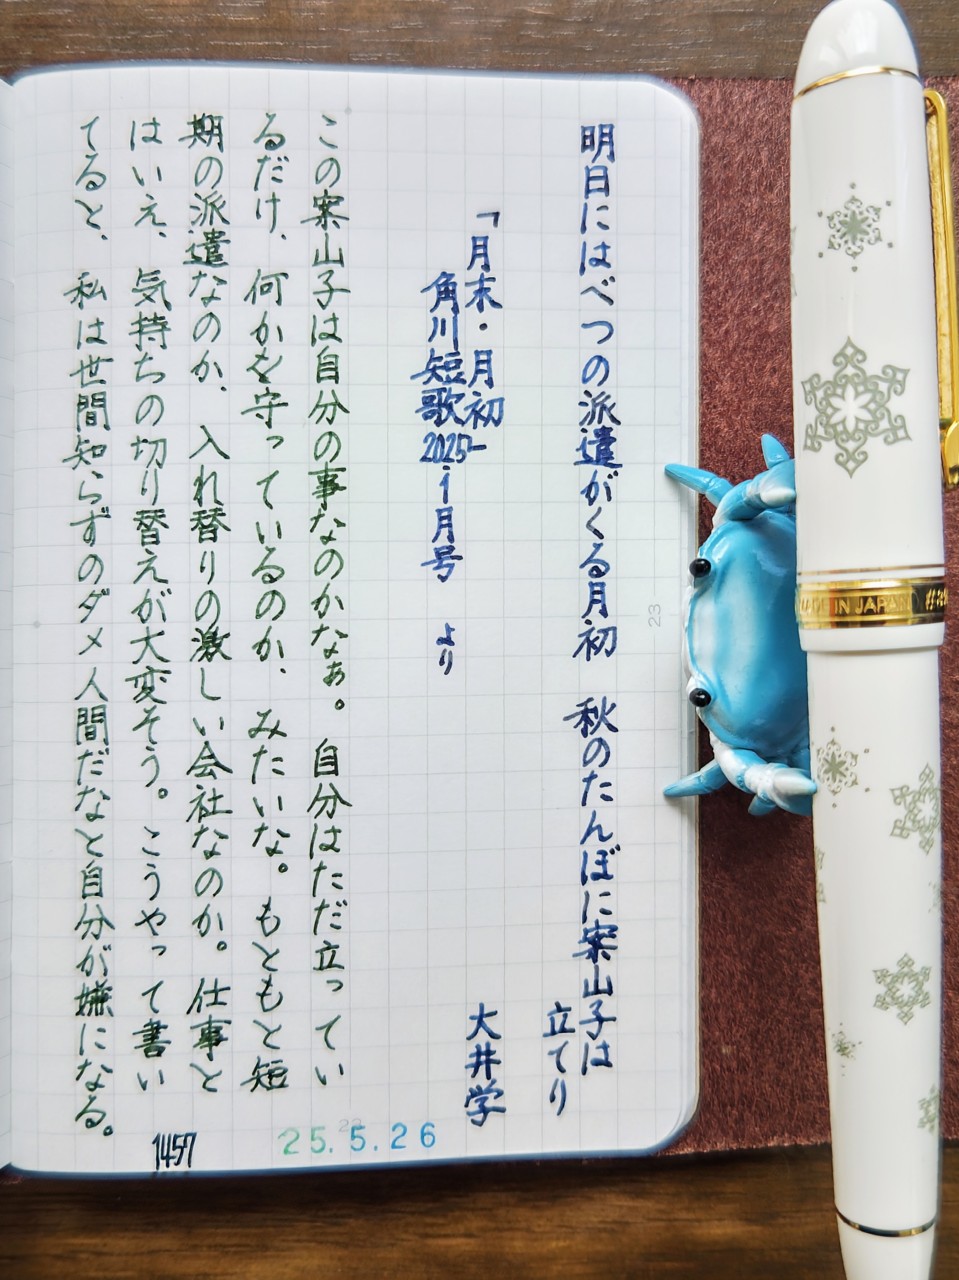 明日にはべつの派遣がくる月初　秋のたんぼに案山子は
立てり
大井学
「月末・月初」
角川短歌2025-1月号　より
この案山子は自分の事なのかなぁ。自分はただ立ってい
るだけ、何かを守っているのか、みたいな。もともと短
期の派遣なのか、入れ替りの激しい会社なのか。仕事と
はいえ、気持ちの切り替えが大変そう。こうやって書い
てると、私は世間知らずのダメ人間だなと自分が嫌になる。
1457
25.5.26
23
MADE IN JAPAN